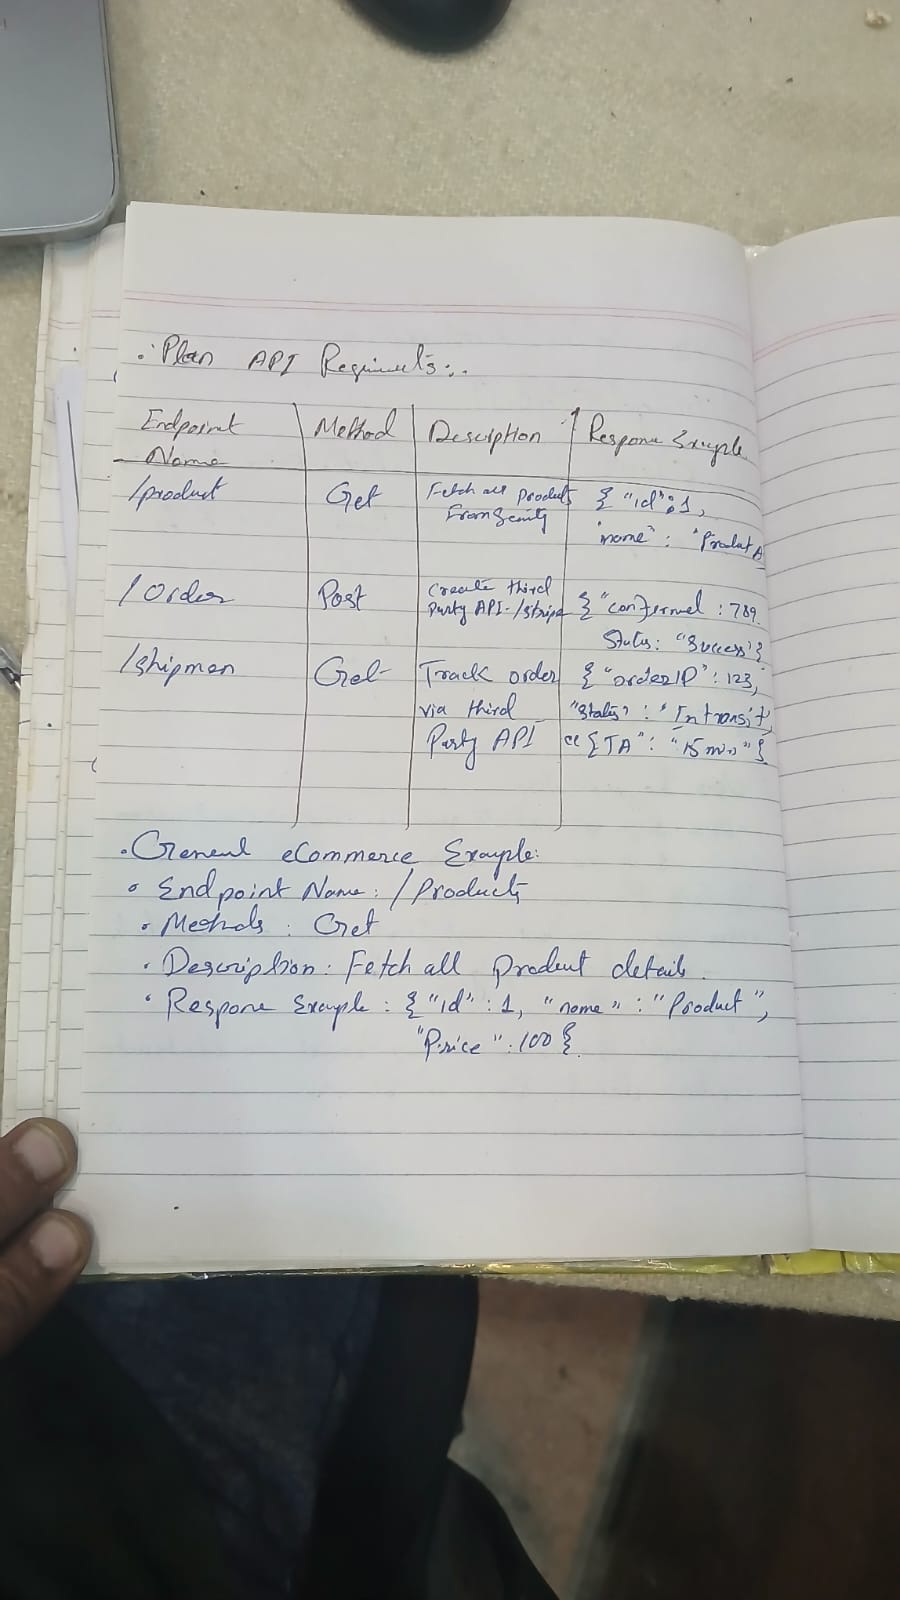 ∴ Plan API Requirmets:.
Endpoint Name | Method | Description | Response Example
/product | Get | Fetch all Products From Sanity | { "id": 1, "name": "Product A
/Order | Post | Create third Party API-/stripe | { "confermel : 789 Status: "Success"}
/shipmen | Get | Track order via third Party API | { "orderID" : 123, "Status" : "In transit", "ETA" : "15 min" }
• General eCommerce Example:
• Endpoint Name: /Products
• Methods : Get
• Description: Fetch all Product details.
• Respone Example : { "id" : 1, "name" : "Product",
"Price" : 100 }.